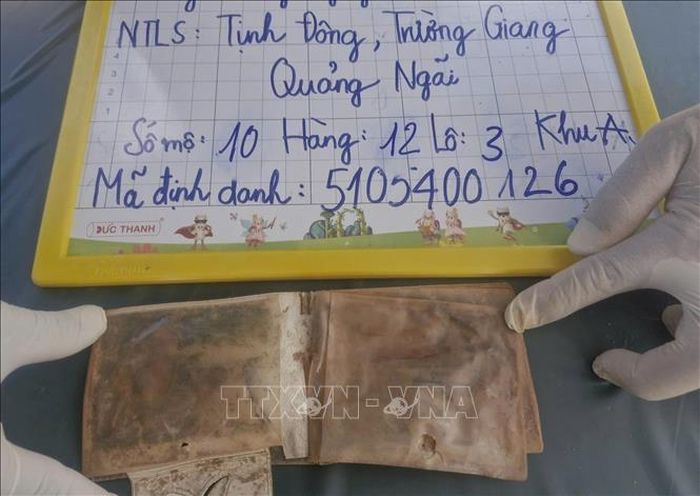 NTLS: Tịnh Đông, Trường Giang
Quảng Ngãi
Số mộ: 10 Hàng: 12 Lô: 3 Khu A
Mã định danh: 5105400126
ĐỨC THANH
TTXVN - VNA